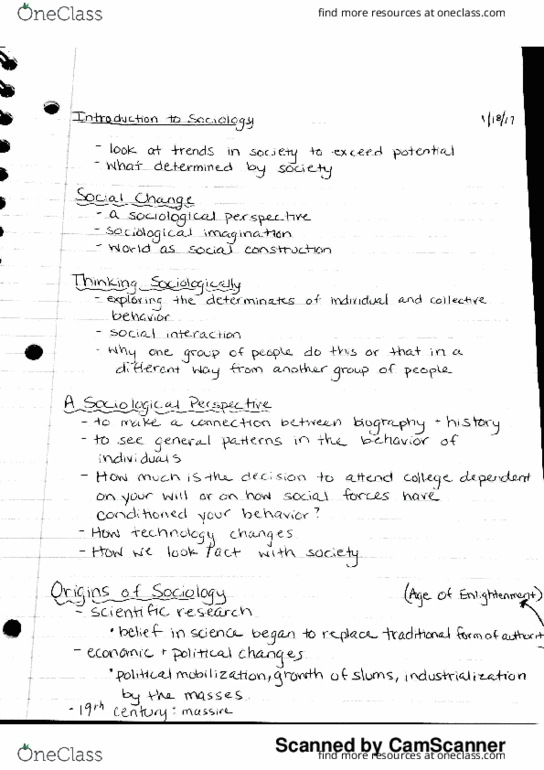 OneClass
find more resources at oneclass.com
Introduction to Sociology
1/18/17
- look at trends in society to exceed potential
- what determined by society
Social Change
- a sociological perspective
- sociological imagination
- world as social construction
Thinking Sociologically
- exploring the determinates of individual and collective
behavior
- social interaction
- why one group of people do this or that in a
different way from another group of people
A Sociological Perspective
- to make a connection between biography + history
- to see general patterns in the behavior of
individuals
- How much is the decision to attend college dependent
on your will or on how social forces have
conditioned your behavior?
- How technology changes
- How we look fact with society
Origins of Sociology
(Age of Enlightenment)
- scientific research
• belief in science began to replace traditional form of authorit
- economic + political changes
• political mobilization, growth of slums, industrialization
by the masses
- 19th century: massive
Scanned by CamScanner
OneClass
find more resources at oneclass.com